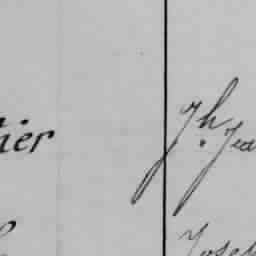 ier Jh. Jea
Josep